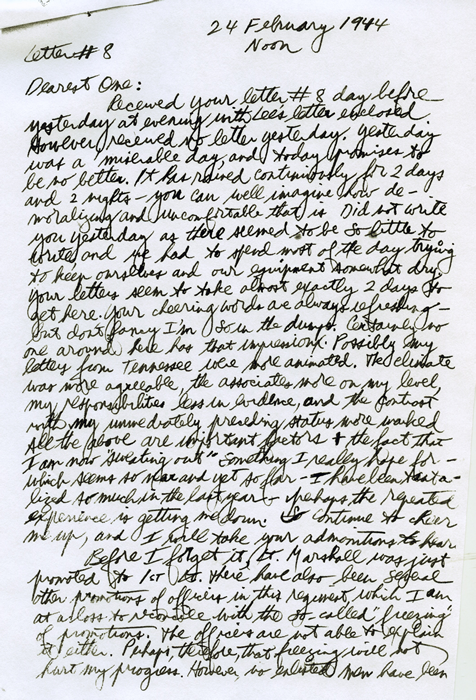 24 February 1944
Noon
Letter #8
Dearest One:
Received your letter #8 day before
yesterday at evening with Lee's letter enclosed.
However, received no letter yesterday. Yesterday
was a miserable day and today promises to
be no better. It has rained continuously for 2 days
and 2 nights - you can well imagine how de-
moralizing and uncomfortable that is. Did not write
you yesterday as there seemed to be so little to
write and we had to spend most of the day trying
to keep ourselves and our equipment somewhat dry.
Your letters seem to take almost exactly 2 days to
get here. Your cheering words are always refreshing -
but don't fancy I'm so in the dumps. Certainly no
one around here has that impression. Possibly my
letters from Tennessee were more animated. The climate
was more agreeable, the associates more on my level,
my responsibilities less in evidence, and the contrast
with my immediately preceding status more marked.
All the above are important factors + the fact that
I am now "sweating out" something I really hope for -
which seems so near and yet so far - I have been
so much in the last year - perhaps the repeated
experience is getting me down. So continue to cheer
me up, and I will take your admonitions to hear
Before I forget it, Lt. Marshall was just
promoted to 1st Lt. There have also been several
other promotions of officers in this regiment which I am
at a loss to reconcile with the so-called "freezing"
of promotions. The officers are not able to explain
it either. Perhaps, therefore, that freezing will not
hurt my progress. However no enlisted men have been